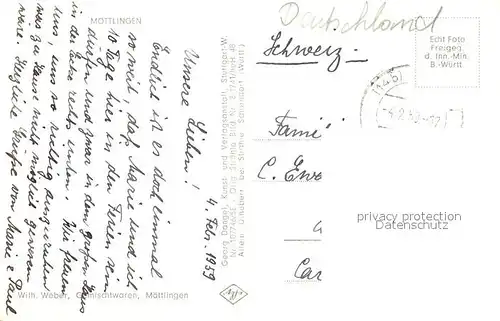 MÖTTLINGEN
4. Febr. 1959
Unsere Lieben!
Endlich ist es doch einmal
so weit, daß Marie und ich
10 Tage hier in den Ferien sein
dürfen und zwar in dem großen Haus
in der Ecke rechts unten. Wir freuen
uns, uns so richtig auszuruhen
was zu Hause nicht möglich gewesen
wäre. Herzliche Grüße von Marie & Paul
Wilh. Weber, Gemischtwaren, Möttlingen
Georg Dongel, Kunst- und Verlagsanstalt, Stuttgart-W.
Deutschland
Schweiz
Echt Foto
Freigeg.
d. Inn.-Min.
B.-Württ
Fami
C.
Car
privacy protection
Datenschutz